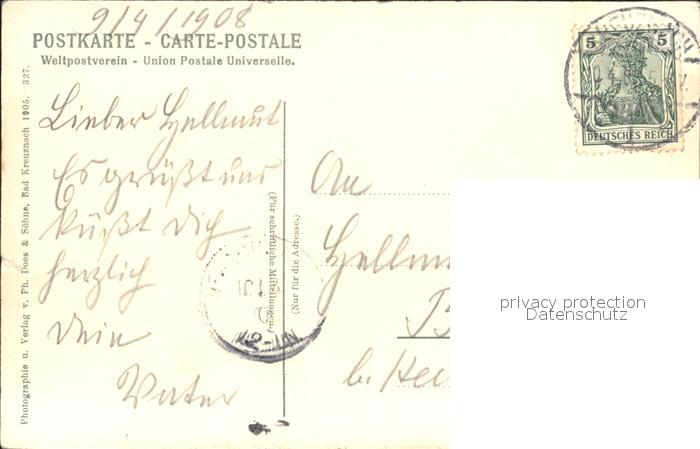 9/4/1908
POSTKARTE - CARTE-POSTALE
Weltpostverein - Union Postale Universelle.
5 5
DEUTSCHES REICH
Lieber Hellmut
Es grüßt und
küßt Dich
herzlich
Dein
Vater
Photographie u. Verlag v. Ph. Does & Söhne, Bad Kreuznach 1905. 327.
(Für schriftliche Mitteilungen.)
(Nur für die Adresse.)
An
b.
privacy protection
Datenschutz